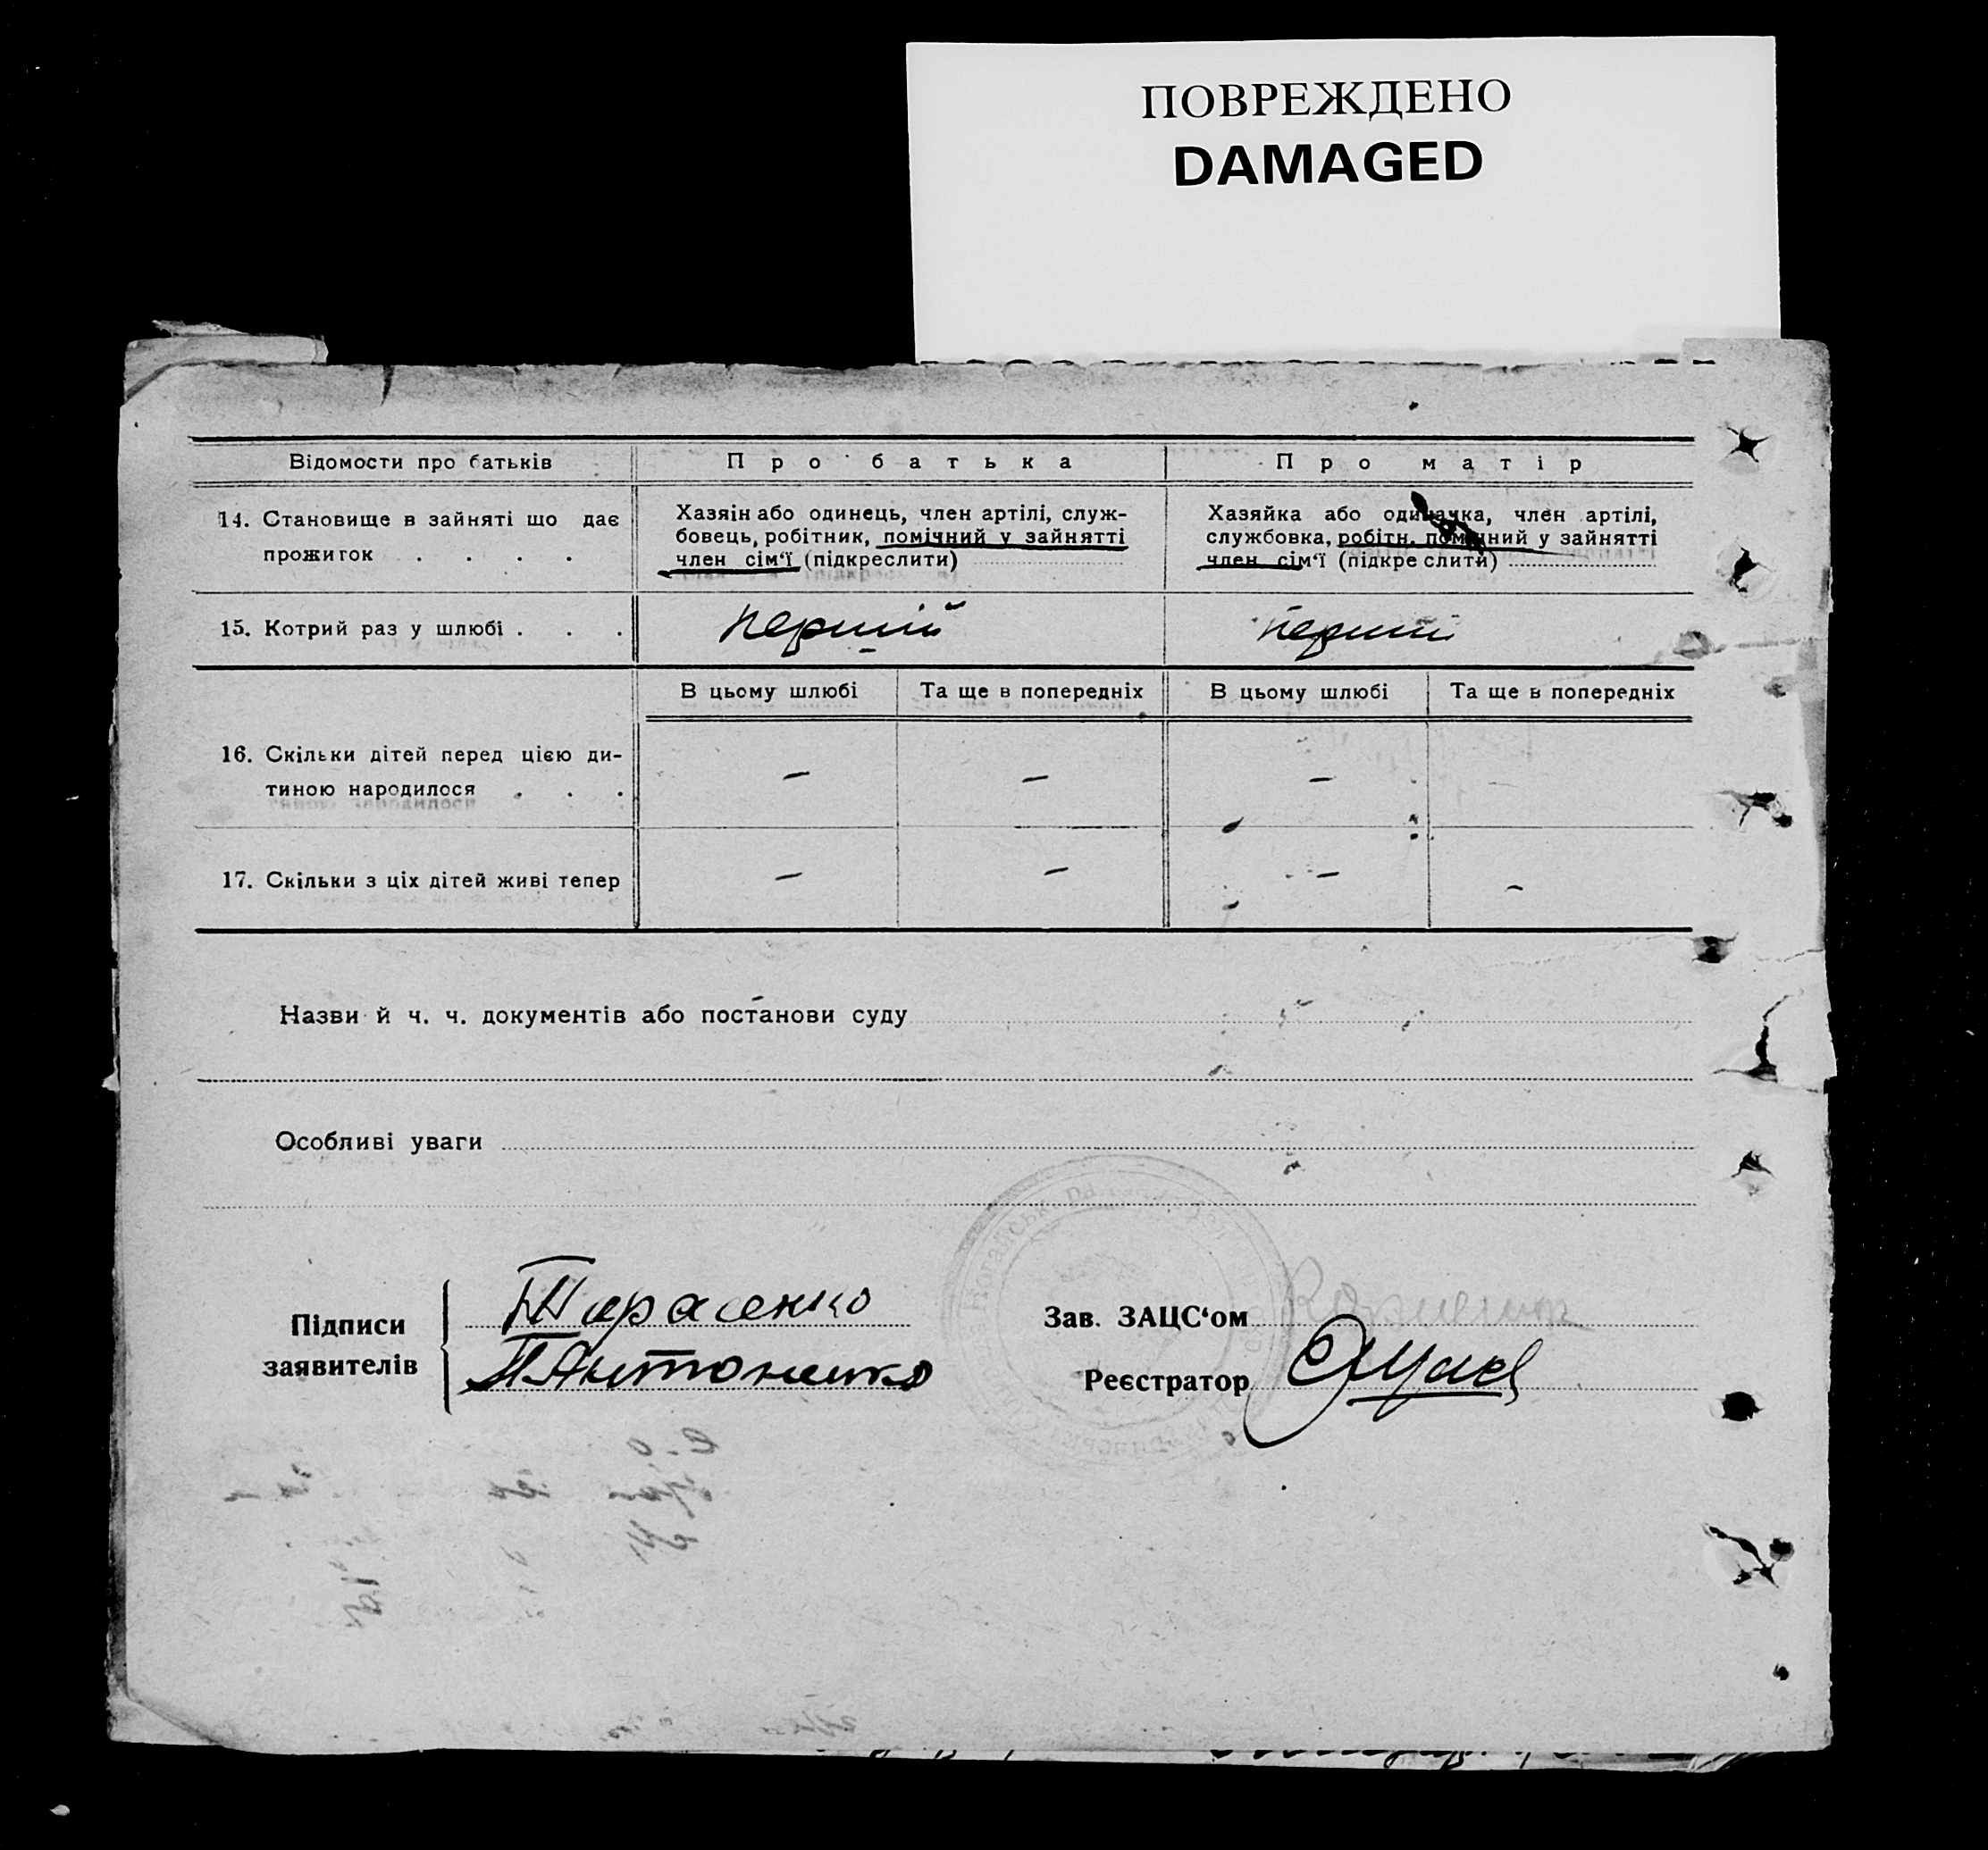 ПОВРЕЖДЕНО
DAMAGED
Відомости про батьків
Про батька
Про матір
14. Становище в зайняті що дає
прожиток . . . .
Хазяін або одинець, член артілі, служ-
бовець, робітник, помічний у зайнятті
член сім‘ї (підкреслити)
Хазяйка або одиначка, член артілі,
службовка, робітн. помічний у зайнятті
член сім‘ї (підкреслити)
15. Котрий раз у шлюбі . . .
перший
перший
В цьому шлюбі
Та ще в попередніх
В цьому шлюбі
Та ще в попередніх
16. Скільки дітей перед цією ди-
тиною народилося . . .
— — —
17. Скільки з ціх дітей живі тепер
— — — —
Назви й ч. ч. документів або постанови суду
Особливі уваги
Підписи
заявителів
Тарасенко
П Антоненко
Зав. ЗАЦС‘ом
Реєстратор